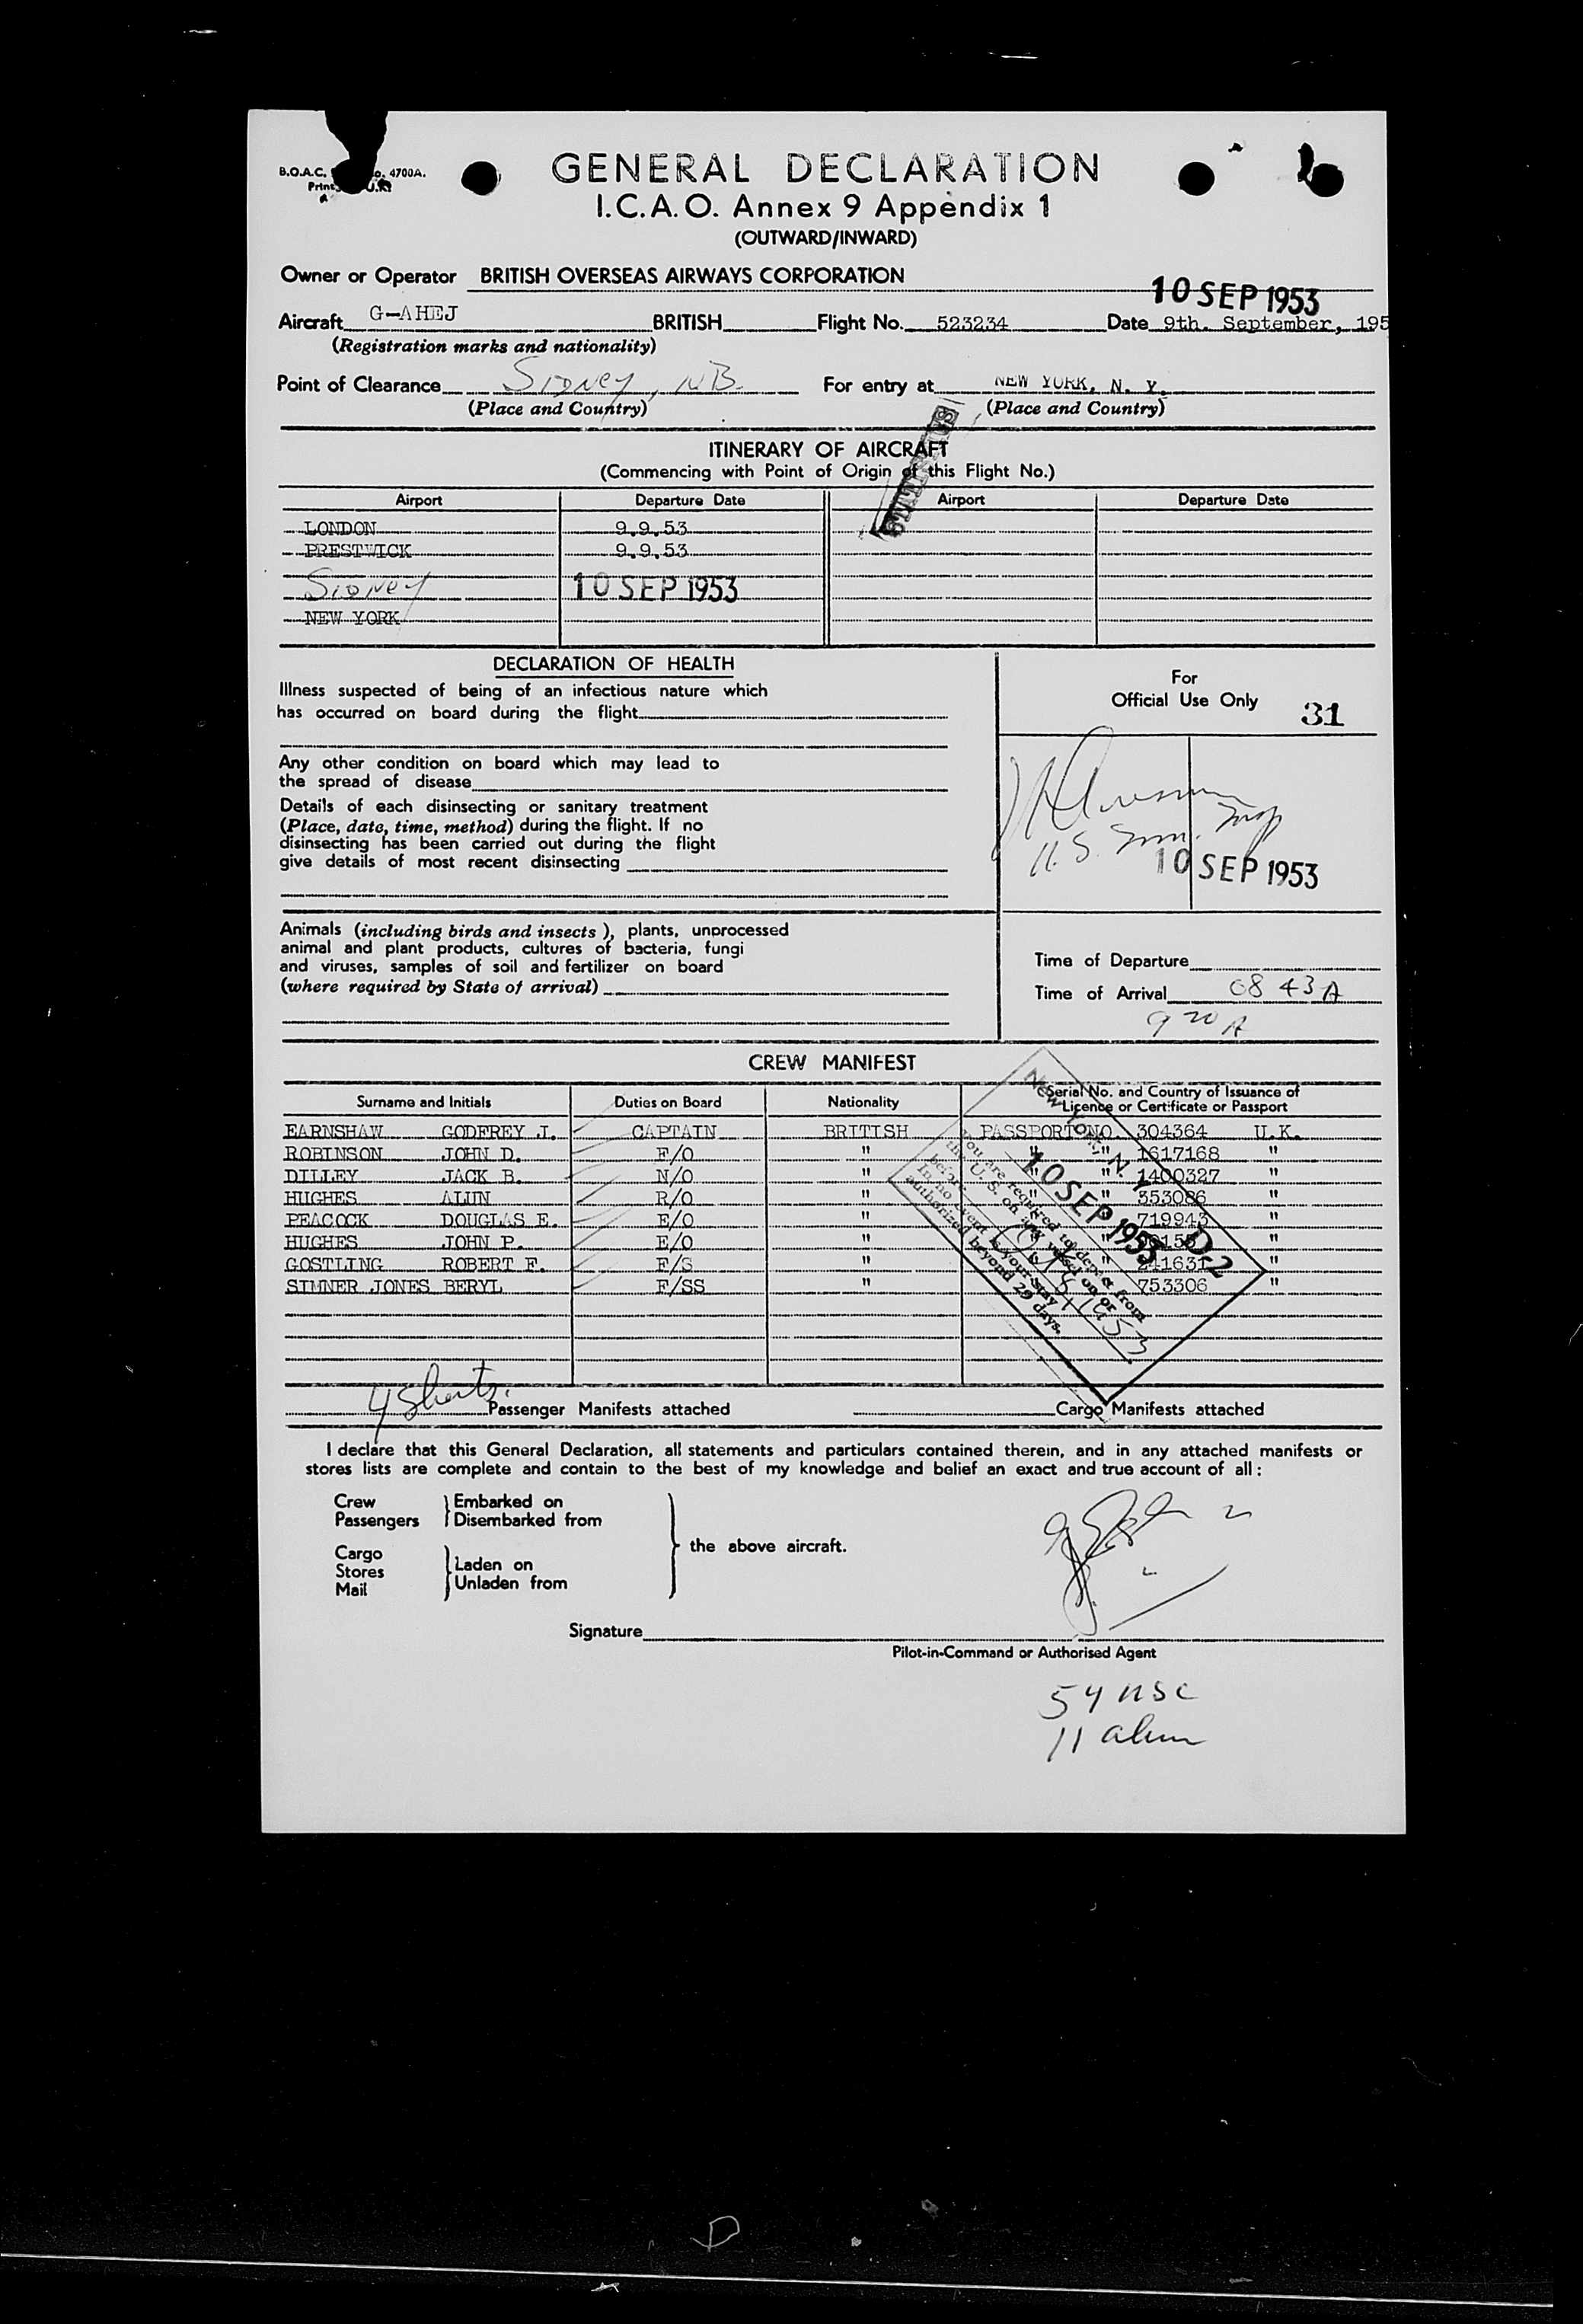 B.O.A.C. o. 4700A.
GENERAL DECLARATION
I.C.A.O. Annex 9 Appendix 1
(OUTWARD/INWARD)
Owner or Operator BRITISH OVERSEAS AIRWAYS CORPORATION
10 SEP 1953
Aircraft G-AHEJ BRITISH Flight No. 523234 Date 9th. September, 195
(Registration marks and nationality)
Point of Clearance Sidney, NB. For entry at NEW YORK, N. Y.
(Place and Country) (Place and Country)
ITINERARY OF AIRCRAFT
(Commencing with Point of Origin of this Flight No.)
Airport Departure Date Airport Departure Date
LONDON 9.9.53
PRESTWICK 9.9.53
Sidney 10 SEP 1953
NEW YORK
DECLARATION OF HEALTH
Illness suspected of being of an infectious nature which
has occurred on board during the flight
Any other condition on board which may lead to
the spread of disease
Details of each disinsecting or sanitary treatment
(Place, date, time, method) during the flight. If no
disinsecting has been carried out during the flight
give details of most recent disinsecting
For
Official Use Only 31
U.S. Imm. Insp
10 SEP 1953
Animals (including birds and insects), plants, unprocessed
animal and plant products, cultures of bacteria, fungi
and viruses, samples of soil and fertilizer on board
(where required by State of arrival)
Time of Departure
Time of Arrival 08 43 A
9 20 A
CREW MANIFEST
Surname and Initials Duties on Board Nationality Serial No. and Country of Issuance of
Licence or Certificate or Passport
EARNSHAW GODFREY J. CAPTAIN BRITISH PASSPORT NO. 304364 U.K.
ROBINSON JOHN D. F/O " " " 1617168 "
DILLEY JACK B. N/O " " 1400327 "
HUGHES ALUN R/O " " " 353086 "
PEACOCK DOUGLAS E. E/O " 719943 "
HUGHES JOHN P. E/O " "
GOSTLING ROBERT F. F/S " "
SIMNER JONES BERYL F/SS " 753306 "
New York, N. Y.
10 SEP 1953 D2
You are required to depart from
the U. S. on any vessel on or
before Oct 8, 1953
In no event is your stay
authorized beyond 29 days.
4 Sheets. Passenger Manifests attached Cargo Manifests attached
I declare that this General Declaration, all statements and particulars contained therein, and in any attached manifests or
stores lists are complete and contain to the best of my knowledge and belief an exact and true account of all :
Crew Embarked on
Passengers Disembarked from
the above aircraft.
Cargo
Stores Laden on
Mail Unladen from
Signature
Pilot-in-Command or Authorised Agent
54 usc
11 alien